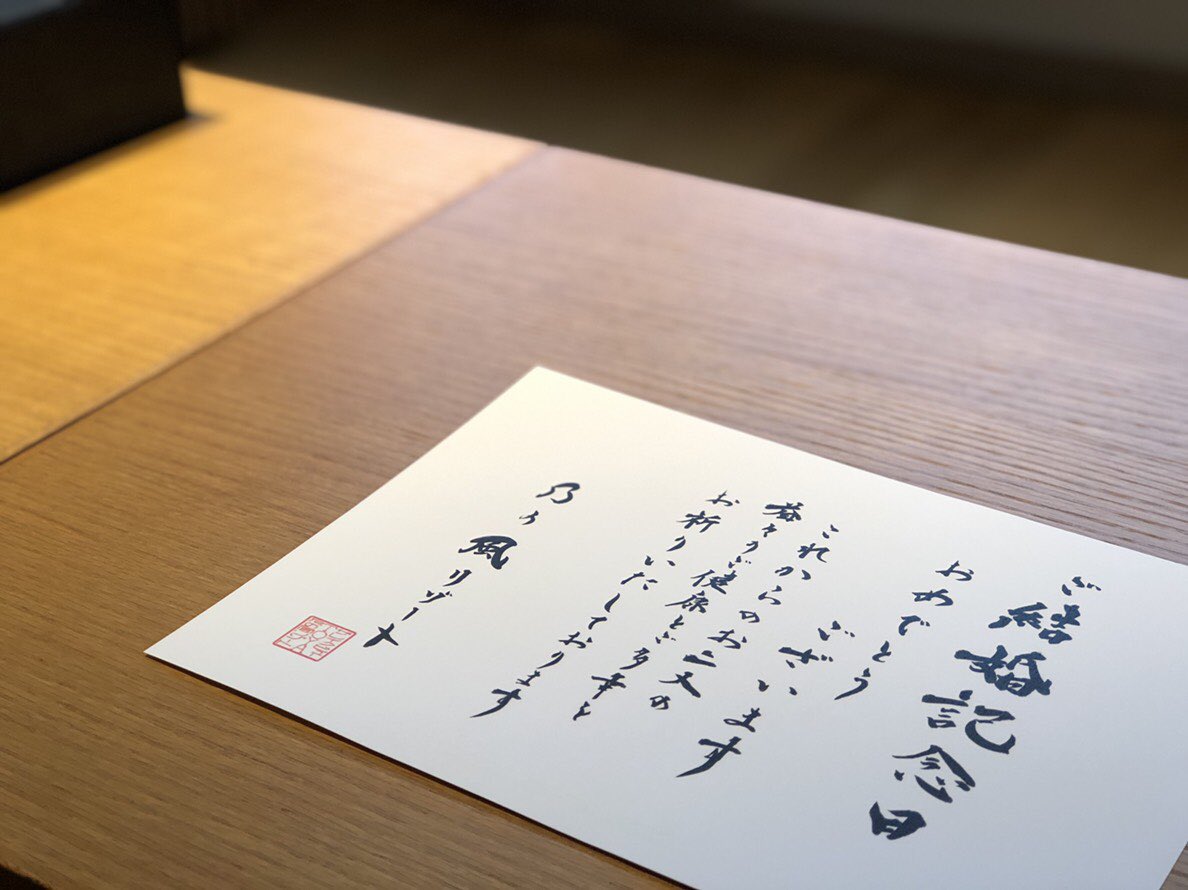 ご結婚記念日
おめでとう
ございます
これからのお二人の
益々のご健康とご多幸を
お祈りいたしております
乃の風リゾート